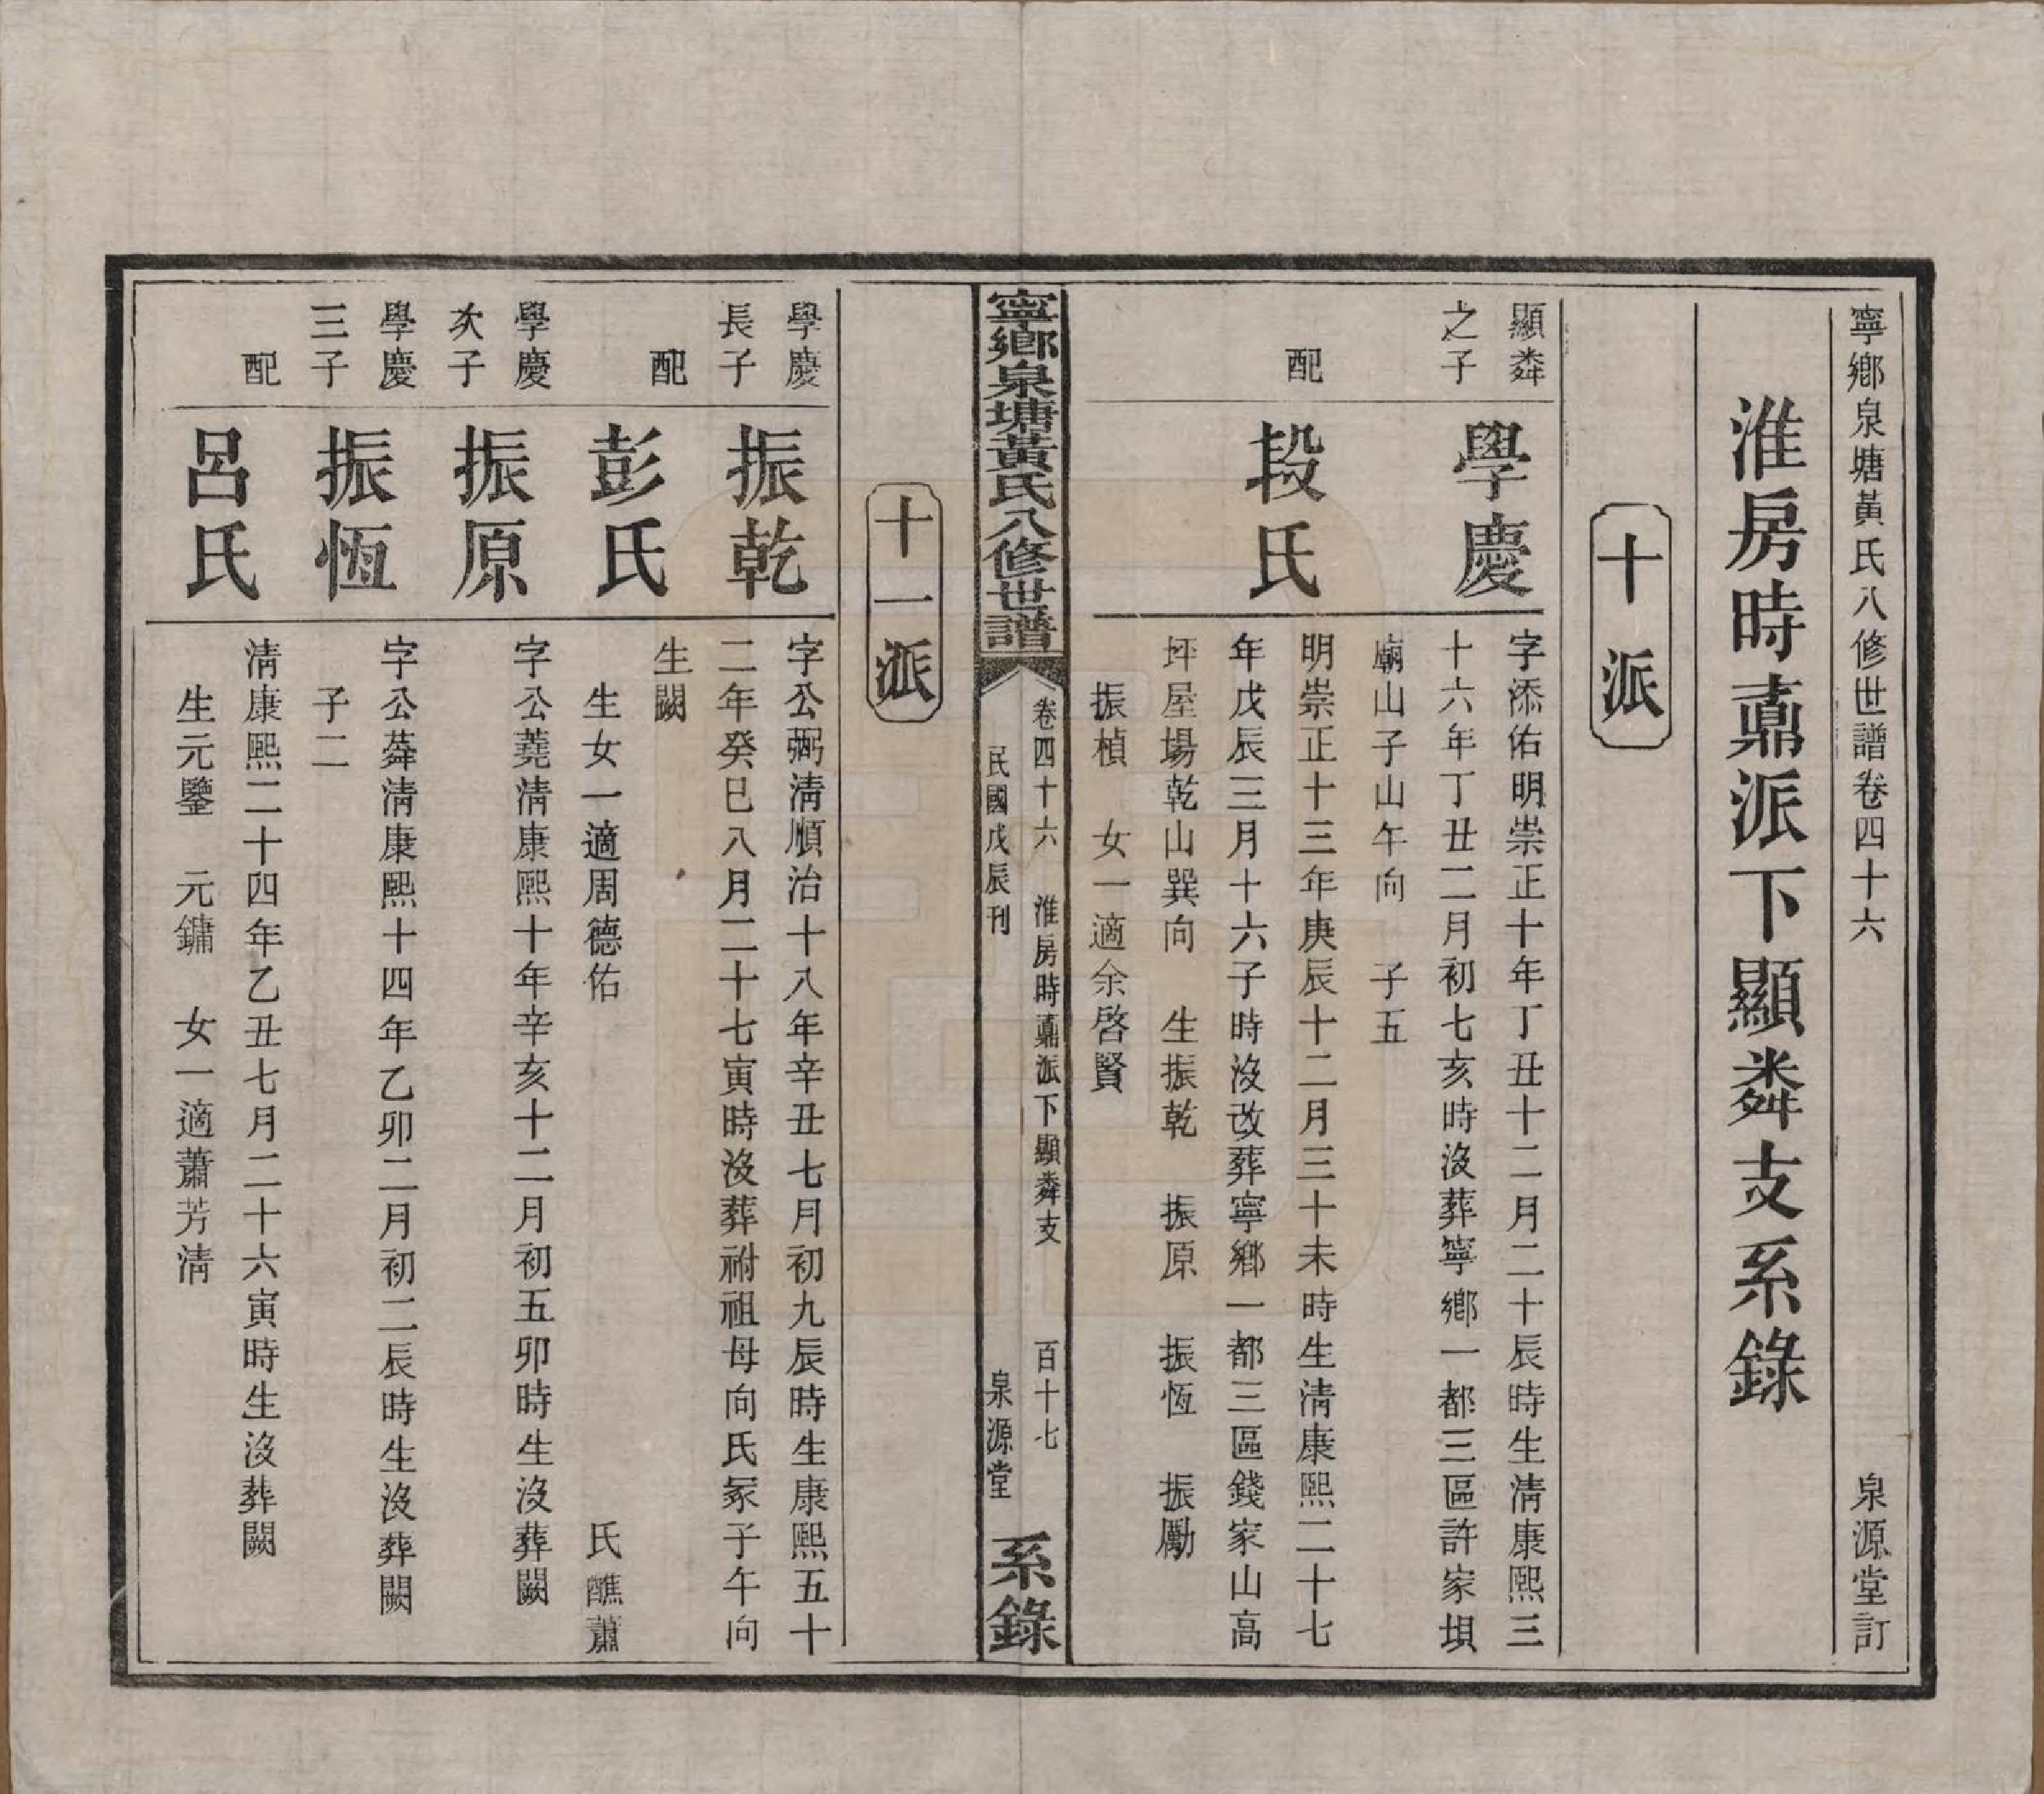 寧鄉泉塘黃氏八修世譜卷四十六　泉源堂訂
淮房時鼒派下顯粦支系錄
十派
顯粦之子
學慶
字添佑明崇正十年丁丑十二月二十辰時生清康熙三
十六年丁丑二月初七亥時沒葬寧鄉一都三區許家垻
廟山子山午向　子五
配
段氏
明崇正十三年庚辰十二月三十未時生清康熙二十七
年戊辰三月十六子時沒改葬寧鄉一都三區錢家山高
坪屋場乾山巽向　生振乾　振原　振恆　振勵
振楨　女一適余啓賢
寧鄉泉塘黃氏八修世譜
卷四十六　淮房時鼒派下顯粦支　百十七
民國戊辰刊　泉源堂
系錄
十一派
學慶長子
振乾
字公弼清順治十八年辛丑七月初九辰時生康熙五十
二年癸巳八月二十七寅時沒葬祔祖母向氏冢子午向
配
彭氏
生闕
生女一適周德佑　氏醮蕭
學慶次子
振原
字公蕘清康熙十年辛亥十二月初五卯時生沒葬闕
學慶三子
振恆
字公蕣清康熙十四年乙卯二月初二辰時生沒葬闕
子二
配
呂氏
清康熙二十四年乙丑七月二十六寅時生沒葬闕
生元鑒　元鏞　女一適蕭芳清